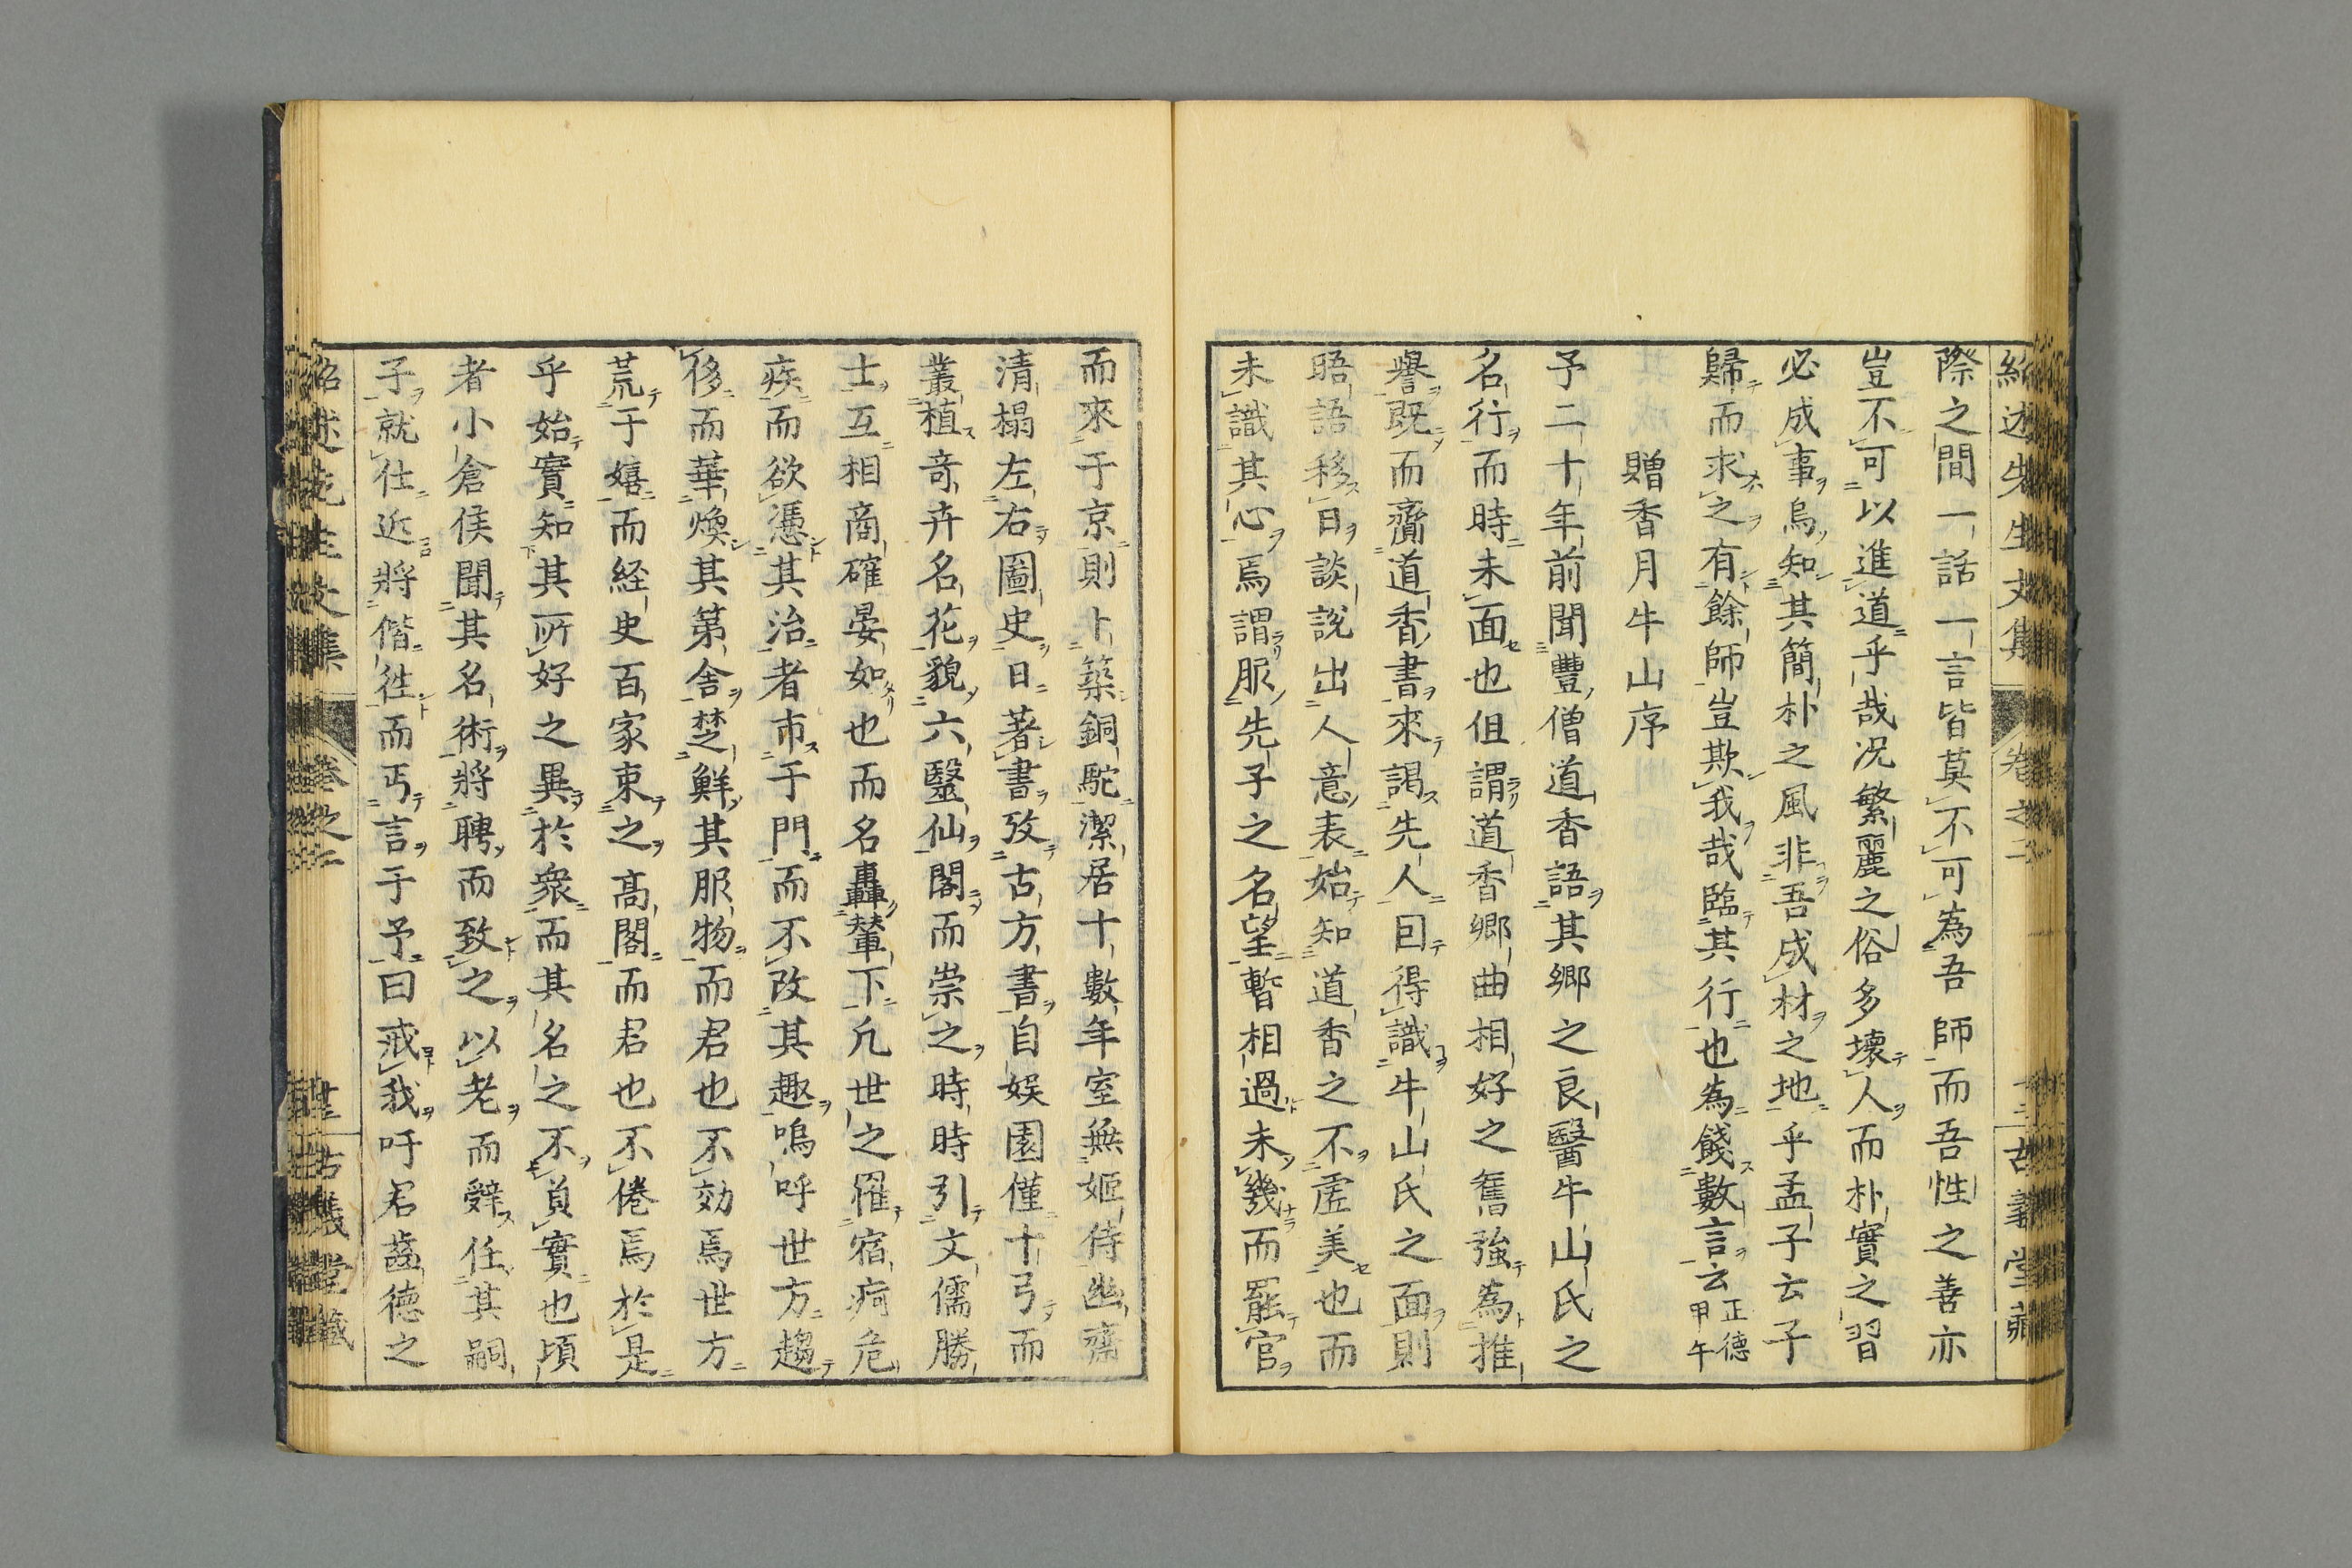 紹述先生文集 卷之二 古義堂藏
際之間一話一言皆莫不可為吾師而吾性之善亦
豈不可以進道乎哉况繁麗之俗多壞人而朴實之習
必成事烏知其簡朴之風非吾成材之地乎孟子云子
歸而求之有餘師豈欺我哉臨其行也為餞數言云正德甲午
贈香月牛山序
予二十年前聞豐僧道香語其鄉之良醫牛山氏之
名行而時未面也但謂道香鄉曲相好之舊強為推
譽既而齎道香書來謁先人因得識牛山氏之面則
晤語移日談說出人意表始知道香之不虛美也而
未識其心焉謂服先子之名望暫相過未幾而罷官
而來于京則卜築銅駝潔居十數年室無姬侍幽齋
清榻左右圖史日著書攷古方書自娛園僅十弓而
叢植奇卉名花貌六醫仙閣而崇之時時引文儒勝
士互相商確晏如也而名轟輦下凡世之罹宿痾危
疾而欲憑其治者市于門而不改其趣嗚呼世方趨
侈而華煥其第舍楚鮮其服物而君也不効焉世方
荒于嬉而経史百家束之高閣而君也不倦焉於是
乎始實知其所好之異於衆而其名之不負實也頃
者小倉侯聞其名術將聘而致之以老而辭任其嗣
子就仕近將偕往而丐言于予曰戒我吁君齒德之
紹述先生文集 卷之二 古義堂藏